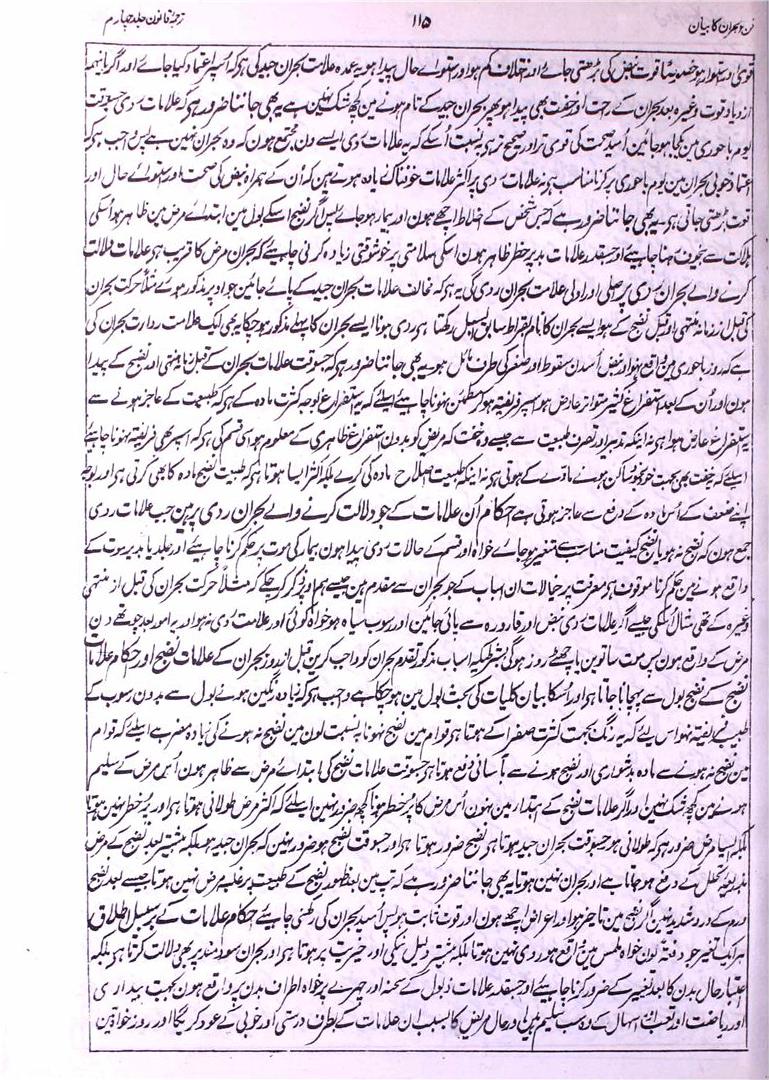 فن بحران کا بیان ۱۱۵ ترجمۂ قانون جلد چہارم
قوی اور استوار ہو جسقدر قوت نبض کی بڑھتی جائے اور اختلاف کم ہو اور استوائے حال پیدا ہو یہ عمدہ علامت بحران جید کی ہے کہ اسپر اعتماد کیا جائے اور اگر باینہمہ
ازدیاد قوت وغیرہ بعد بحران کے راحت اور خفت بھی پیدا ہو پھر بحران جید کے تام ہونے مین کچھ شک نہین ہے یہ بھی جاننا ضرور ہے کہ علامات ردی جسوقت
یوم باحوری مین یکجا ہو جائین اُمید صحت کی قوی تر اور صحیح تر ہے بہ نسبت اُسکے کہ یہ علامات ردی ایسے دن مجتمع ہون کہ وہ بحران نہین ہے پس واجب ہے کہ
اعتماد خوبی بحران مین یوم باحوری پر کرنا مناسب ہے نہ علامات ردی پر اکثر علامات خوفناک زیادہ ہوتے ہین کہ اُن کے ہمراہ نبض کی صحت اور استوائے حال اور
قوت بڑھتی جاتی ہے۔ یہ بھی جاننا ضرور ہے کہ جس شخص کے اخلاط اچھے ہون اور بیمار ہو جائے پس اگر نضج اسکے بول مین ابتدائے مرض مین ظاہر ہو اُسکی
ہلاکت سے بیخوف رہنا چاہیے اور جسقدر علامات بد پر خطر ظاہر ہون اسکی سلامتی پر خوشوقتی زیادہ کرنی چاہیے کہ بحران مرض کا قریب ہے علامات دلالت
کرنے والے بحران ردی پر اصلی اور اولی علامت بحران ردی کی یہ ہے کہ مخالف علامات بحران جید کے پائے جائین جو اوپر مذکور ہوئے مثلاً حرکت بحران
کی قبل از زمانہ منتہی اور قبل نضج کے ہو ایسے بحران کا نام بقراط سابق السیل رکھتا ہے ردی ہونا ایسے بحران کا پہلے مذکور ہو چکا یہ بھی ایک علامت ردارت بحران کی
ہے کہ روز باحوری مین واقع نہو اور نبض اُسدن سقوط اور صغر کی طرف مائل ہو۔ یہ بھی جاننا ضرور ہے کہ جسوقت علامات بحران کے قبل زمانہ منتہی اور نضج کے پیدا
ہون اور اُن کے بعد استفراغ کثیر متواتر عارض ہو اسپر فریفتہ ہو کر مطمئن نہونا چاہیے اسلیے کہ یہ استفراغ بوجہ کثرت مادہ کے ہے کہ طبیعت کے عاجز ہونے سے
یہ استفراغ عارض ہوا ہے نہ اینکہ تدبیر اور تصرف طبیعت سے جیسے وہ خفت کہ مریض کو بدون استفراغ ظاہری کے معلوم ہو اسی قسم کی ہے کہ اسپر بھی فریفتہ نہونا چاہیے
اسلیے کہ یہ خفت بھی بجہت خود بخود ساکن ہونے مادے کے ہوتی ہے نہ اینکہ طبیعت اصلاح مادہ کی کرے بلکہ اکثر ایسا ہوتا ہے کہ طبیعت نضج مادہ کا بھی کرتی ہے اور بوجہ
اپنے ضعف کے اُس مادہ کے دفع سے عاجز ہوتی ہے احکام اُن علامات کے جو دلالت کرنے والے بحران ردی پر ہین جب علامات ردی
جمع ہون کہ نضج نہو یا نضج کیفیت مناسب سے متغیر ہو جائے خواہ اور قسم کے حالات ردی پیدا ہون بیمار کی موت پر حکم کرنا چاہیے اور جلد یا بدیر موت کے
واقع ہونے مین حکم کرنا موقوف ہے معرفت پر حالات ان اسباب کے جو بحران سے مقدم ہین جیسے ہم وہ ذکر کر چکے کہ مثلاً حرکت بحران کی قبل از منتہی
وغیرہ کے تھی مثال اُسکی جیسے اگر علامات ردی نبض اور قارورہ سے پائی جائین اور رسوب سیاہ ہو خواہ کوئی اور علامت ردی نہ ہو اور یہ امور بعد چوتھے دن
مرض کے واقع ہون پس موت ساتوین یا چھٹے روز ہوگی بشرطیکہ اسباب مذکور تقدم بحران کو واجب کرین قبل از روز بحران کے علامات نضج اور احکام علامات
نضج کے نضج بول سے پہچانا جاتا ہے اور اُسکا بیان کلیات کی بحث بول مین ہو چکا ہے واجب ہے کہ زیادہ رنگین ہونے بول سے بدون رسوب کے
طبیب فریفتہ نہو اس لیے کہ یہ رنگ بجہت کثرت صفرا کے ہوتا ہے قوام مین نضج نہونا بہ نسبت لون مین نضج نہ ہونے کی زیادہ مضر ہے اسلیے کہ قوام
مین نضج نہ ہونے سے مادہ بدشواری اور نضج ہونے سے بآسانی دفع ہوتا ہے جسوقت علامات نضج کی ابتدائے مرض سے ظاہر ہون اُس مرض کے سلیم
ہونے مین کچھ شک نہین اور اگر علامات نضج کے ابتدا مین نہون اُس مرض کا پر خطر ہونا کچھ ضرور نہین اسلیے کہ اکثر مرض طولانی ہوتا ہے اور پر خطر نہین ہوتا
بلکہ ایسا مرض ضرور ہے کہ طولانی ہو جسوقت بحران جید ہوتا ہے نضج ضرور ہوتا ہے اور جسوقت نضج ہو ضرور نہین کہ بحران جید ہو بلکہ بیشتر بعد نضج کے مرض
بذریعہ تحلل کے دفع ہو جاتا ہے اور بحران نہین ہوتا یہ بھی جاننا ضرور ہے کہ تپ مین بعد ظہور نضج کے طبیعت پر غلبہ مرض نہین ہوتا جیسے بعد نضج
ورم کے درد شدید نہین اگر نضج مین تاخیر ہو اور اعراض اچھے ہون اور قوت ثابت ہو پس اُمید بحران کی رکھنی چاہیے احکام علامات کے بر سبیل اطلاق
ہر ایک تغیر جو دفعۃً لون خواہ ملمس مین واقع ہو ردی نہین ہوتا بلکہ بیشتر دلیل نیکی اور خیریت پر ہوتا ہے اور بحران سودمند پر بھی دلالت کرتا ہے بلکہ
اعتبار حال بدن کا بعد تغییر کے ضرور کرنا چاہیے اور جسقدر علامات ذبول کے سحنہ اور چہرے پر خواہ اطراف بدن پر واقع ہون بجہت بیداری
اور ریاضت اور تعب اور اسہال کے وہ سب سلیم ہین اور حال مریض کا بسبب ان علامات کے بطرف درستی اور خوبی کے عود کریگا اور روز خواہ تین